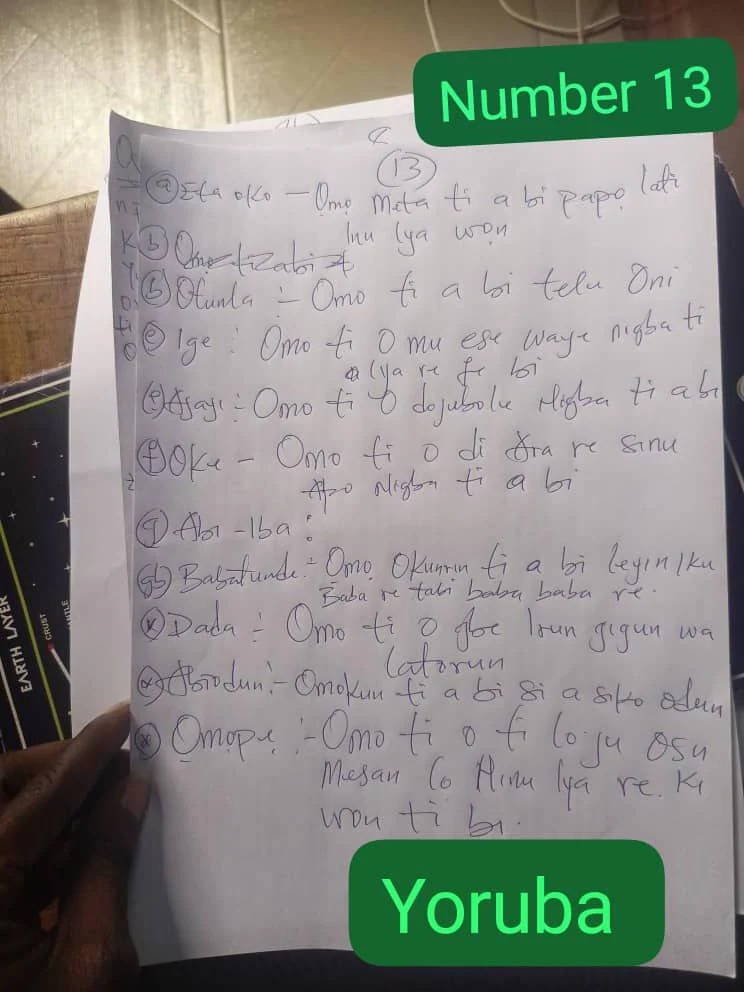 Number 13
13
(a) Eta oko – Omọ Meta ti a bi papọ lati
Inu Iya wọn
(b)
(b) Otunla :- Omo ti a bi telu Oni
(e) Ige : Omo ti O mu ese waye nigba ti
Iya re fe bi
(e) Ajayi :- Omo ti O dojubolu Nigba ti abi
(f) Oke – Omo ti o di Ara re sinu
Apo Nigba ti a bi
(g) Abi -Iba :
(gb) Babatunde :- Omọ Okunrin ti a bi leyin Iku
Baba re tabi baba baba re.
Dada :- Omo ti o gbe Irun gigun wa
latorun
Abiodun :- Omokun ti a bi si asiko odun
Omope :- Omo ti o ti loju osu
Mesan lo Ninu Iya re. Ki
won ti bi.
EARTH LAYER
CRUST
Yoruba